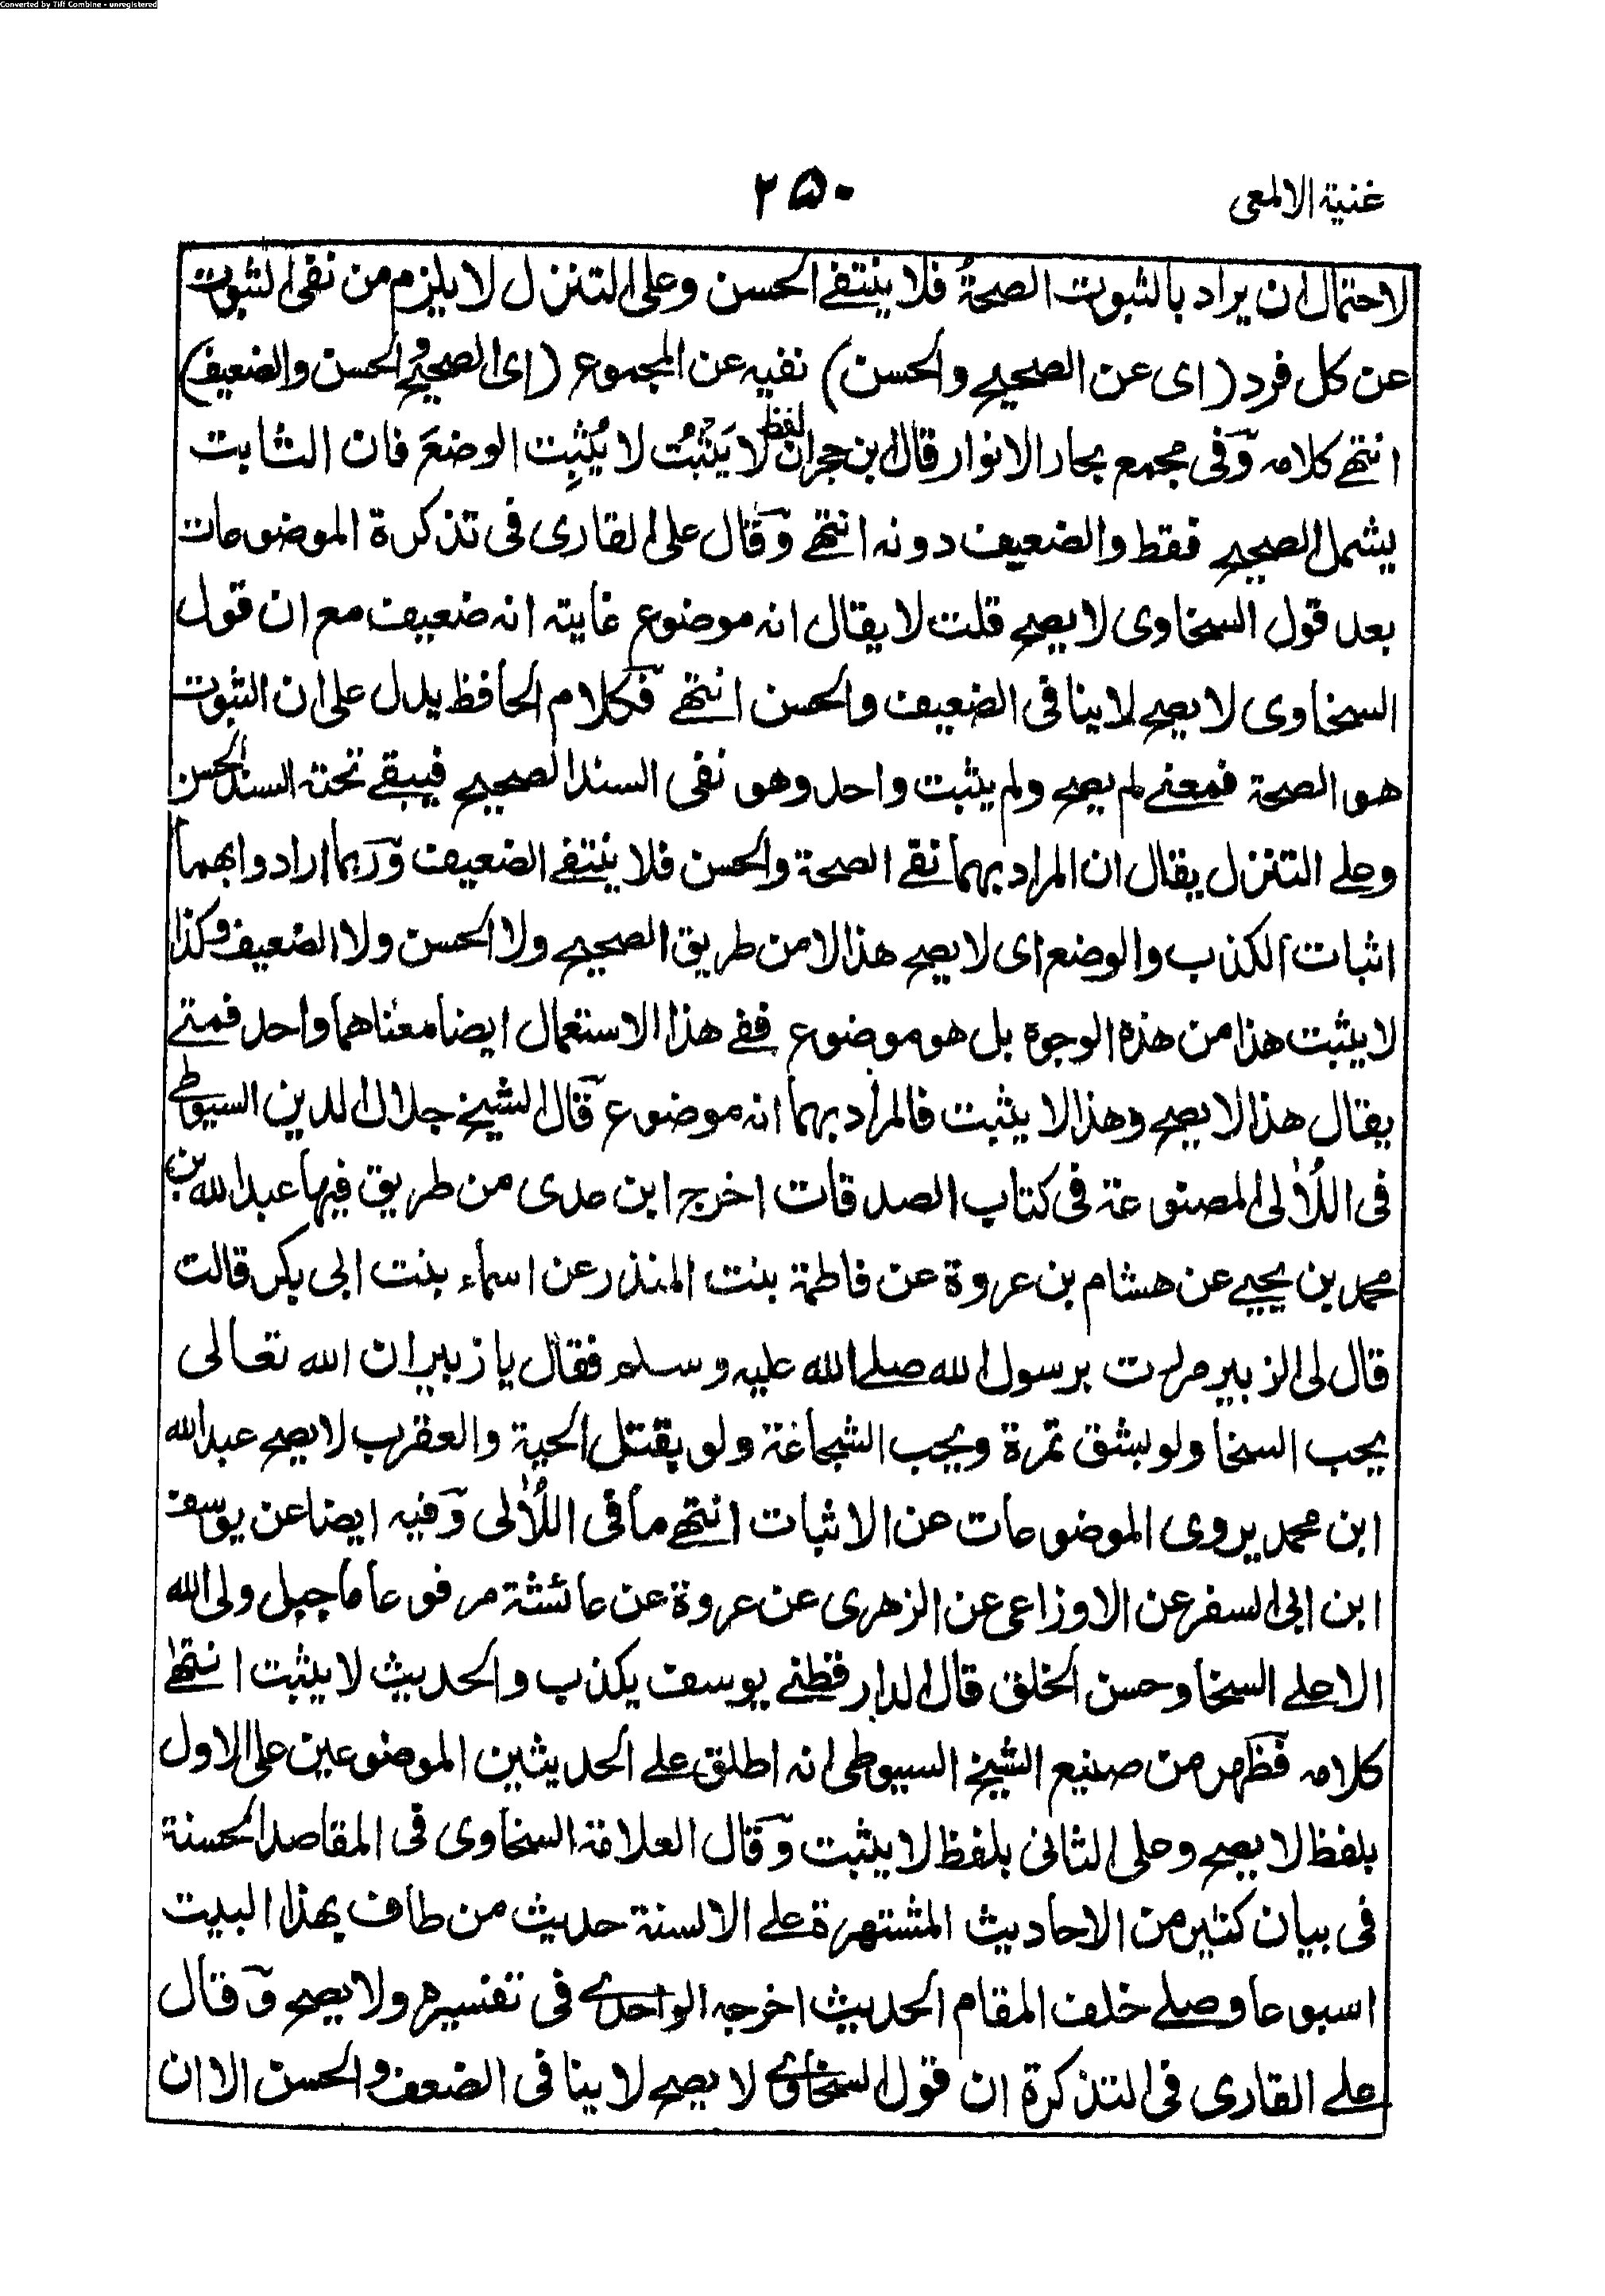 Converted by Tiff Combine - unregistered
غنية الالمعى
۲۵۰
لاحتمال ان يراد بالثبوت الصحةُ فلا ينتفے الحسن وعلى التنزل لا يلزم من نفى الثبوت
عن كل فرد (اى عن الصحيح والحسن) نفيه عن المجموع (اى الصحيح والحسن والضعيف)
انتهے كلامه وفى مجمع بحار الانوار قال ابن حجر ان لفظ لا يَثْبُت لا يُثبِت الوضعَ فان الثابت
يشمل الصحيح فقط والضعيف دونه انتهے وقال على القارى فى تذكرة الموضوعات
بعد قول السخاوى لا يصح قلت لا يقال انه موضوع غايته انه ضعيف مع ان قول
السخاوى لا يصح لا ينافى الضعيف والحسن انتهے فكلام الحافظ يدل على ان الثبوت
هو الصحة فمعنے لم يصح ولم يثبت واحد وهو نفى السند الصحيح فيبقے تحته السند الحسن
وعلے التنزل يقال ان المراد بهما نفے الصحة والحسن فلا ينتفے الضعيف وربما ارادوا بهما
اثبات الكذب والوضع اى لا يصح هذا لا من طريق الصحيح ولا الحسن ولا الضعيف وكذا
لا يثبت هذا من هذه الوجوة بل هو موضوع ففے هذا الاستعمال ايضا معناهما واحد فمتے
يقال هذا لا يصح وهذا لا يثبت فالمراد بهما انه موضوع قال الشيخ جلال الدين السيوطے
فى اللُاٰلى المصنوعة فى كتاب الصدقات اخرج ابن عدى من طريق فيها عبد الله بن
محمد بن يحيے عن هشام بن عروة عن فاطمة بنت المنذر عن اسماء بنت ابى بكر قالت
قال لى الزبير مررت برسول الله صلے الله عليه وسلم فقال يا زبير ان الله تعالى
يحب السخا ولو بشق تمرة ويحب الشجاعة ولو بقتل الحية والعقرب لا يصح عبد الله
ابن محمد يروى الموضوعات عن الاثبات انتهے ما فى اللُاٰلى وفيه ايضا عن يوسف
ابن ابى السفر عن الاوزاعى عن الزهرى عن عروة عن عائشة مرفوعا ما جبل ولى الله
الا علے السخا وحسن الخلق قال الدارقطنے يوسف يكذب والحديث لا يثبت انتهےٰ
كلامه فظهر من صنيع الشيخ السيوطى انه اطلق علے الحديثين الموضوعين على الاول
بلفظ لا يصح وعلى الثانى بلفظ لا يثبت وقال العلامة السخاوى فى المقاصد الحسنة
فى بيان كثير من الاحاديث المشتهرة علے الالسنة حديث من طاف بهذا البيت
اسبوعا وصلے خلف المقام الحديث اخرجه الواحدے فى تفسيره ولا يصح وقال
علے القارى فى التذكرة ان قول السخاوے لا يصح لا ينافى الضعف والحسن الا ان